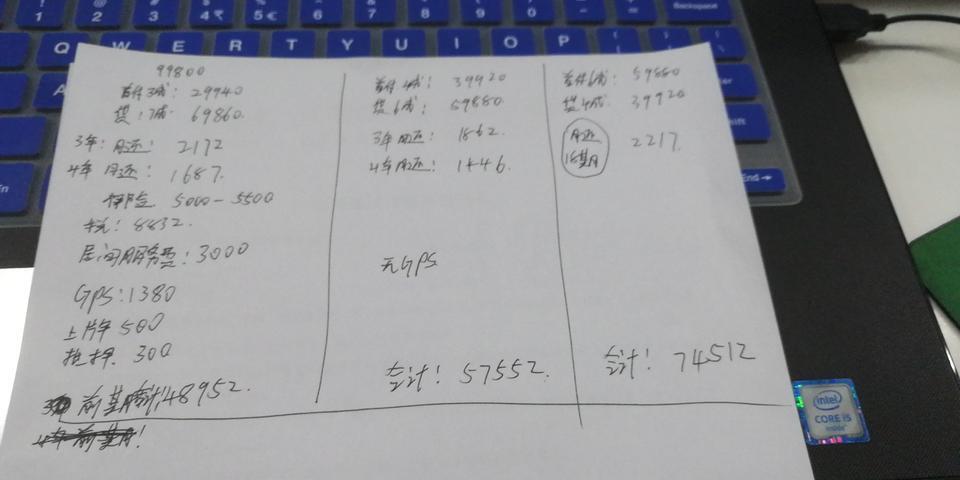 99800
首付3成: 29940
贷:7成: 69860.
3年:月还: 2172
4年月还: 1687.
保险 5000-5500
税: 8832.
居间服务费: 3000
GPS:1380
上牌 500
抵押 300
前期合计48952.
首付4成: 39920
贷6成: 59880
3年月还: 1862.
4年月还: 1446.
无GPS
合计: 57552.
首付6成: 59880
贷4成: 39920
月还 2217.
18期
合计: 74512
Q W E R T Y U I O P
Backspace
End
intel
CORE i5
inside